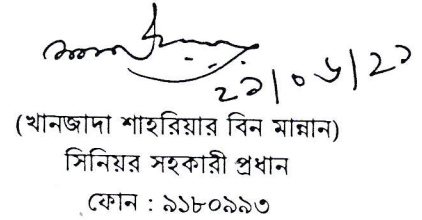 ২৯/০৬/২১
(খানজাদা শাহরিয়ার বিন মান্নান)
সিনিয়র সহকারী প্রধান
ফোন : ৯১৮০৯৯৩